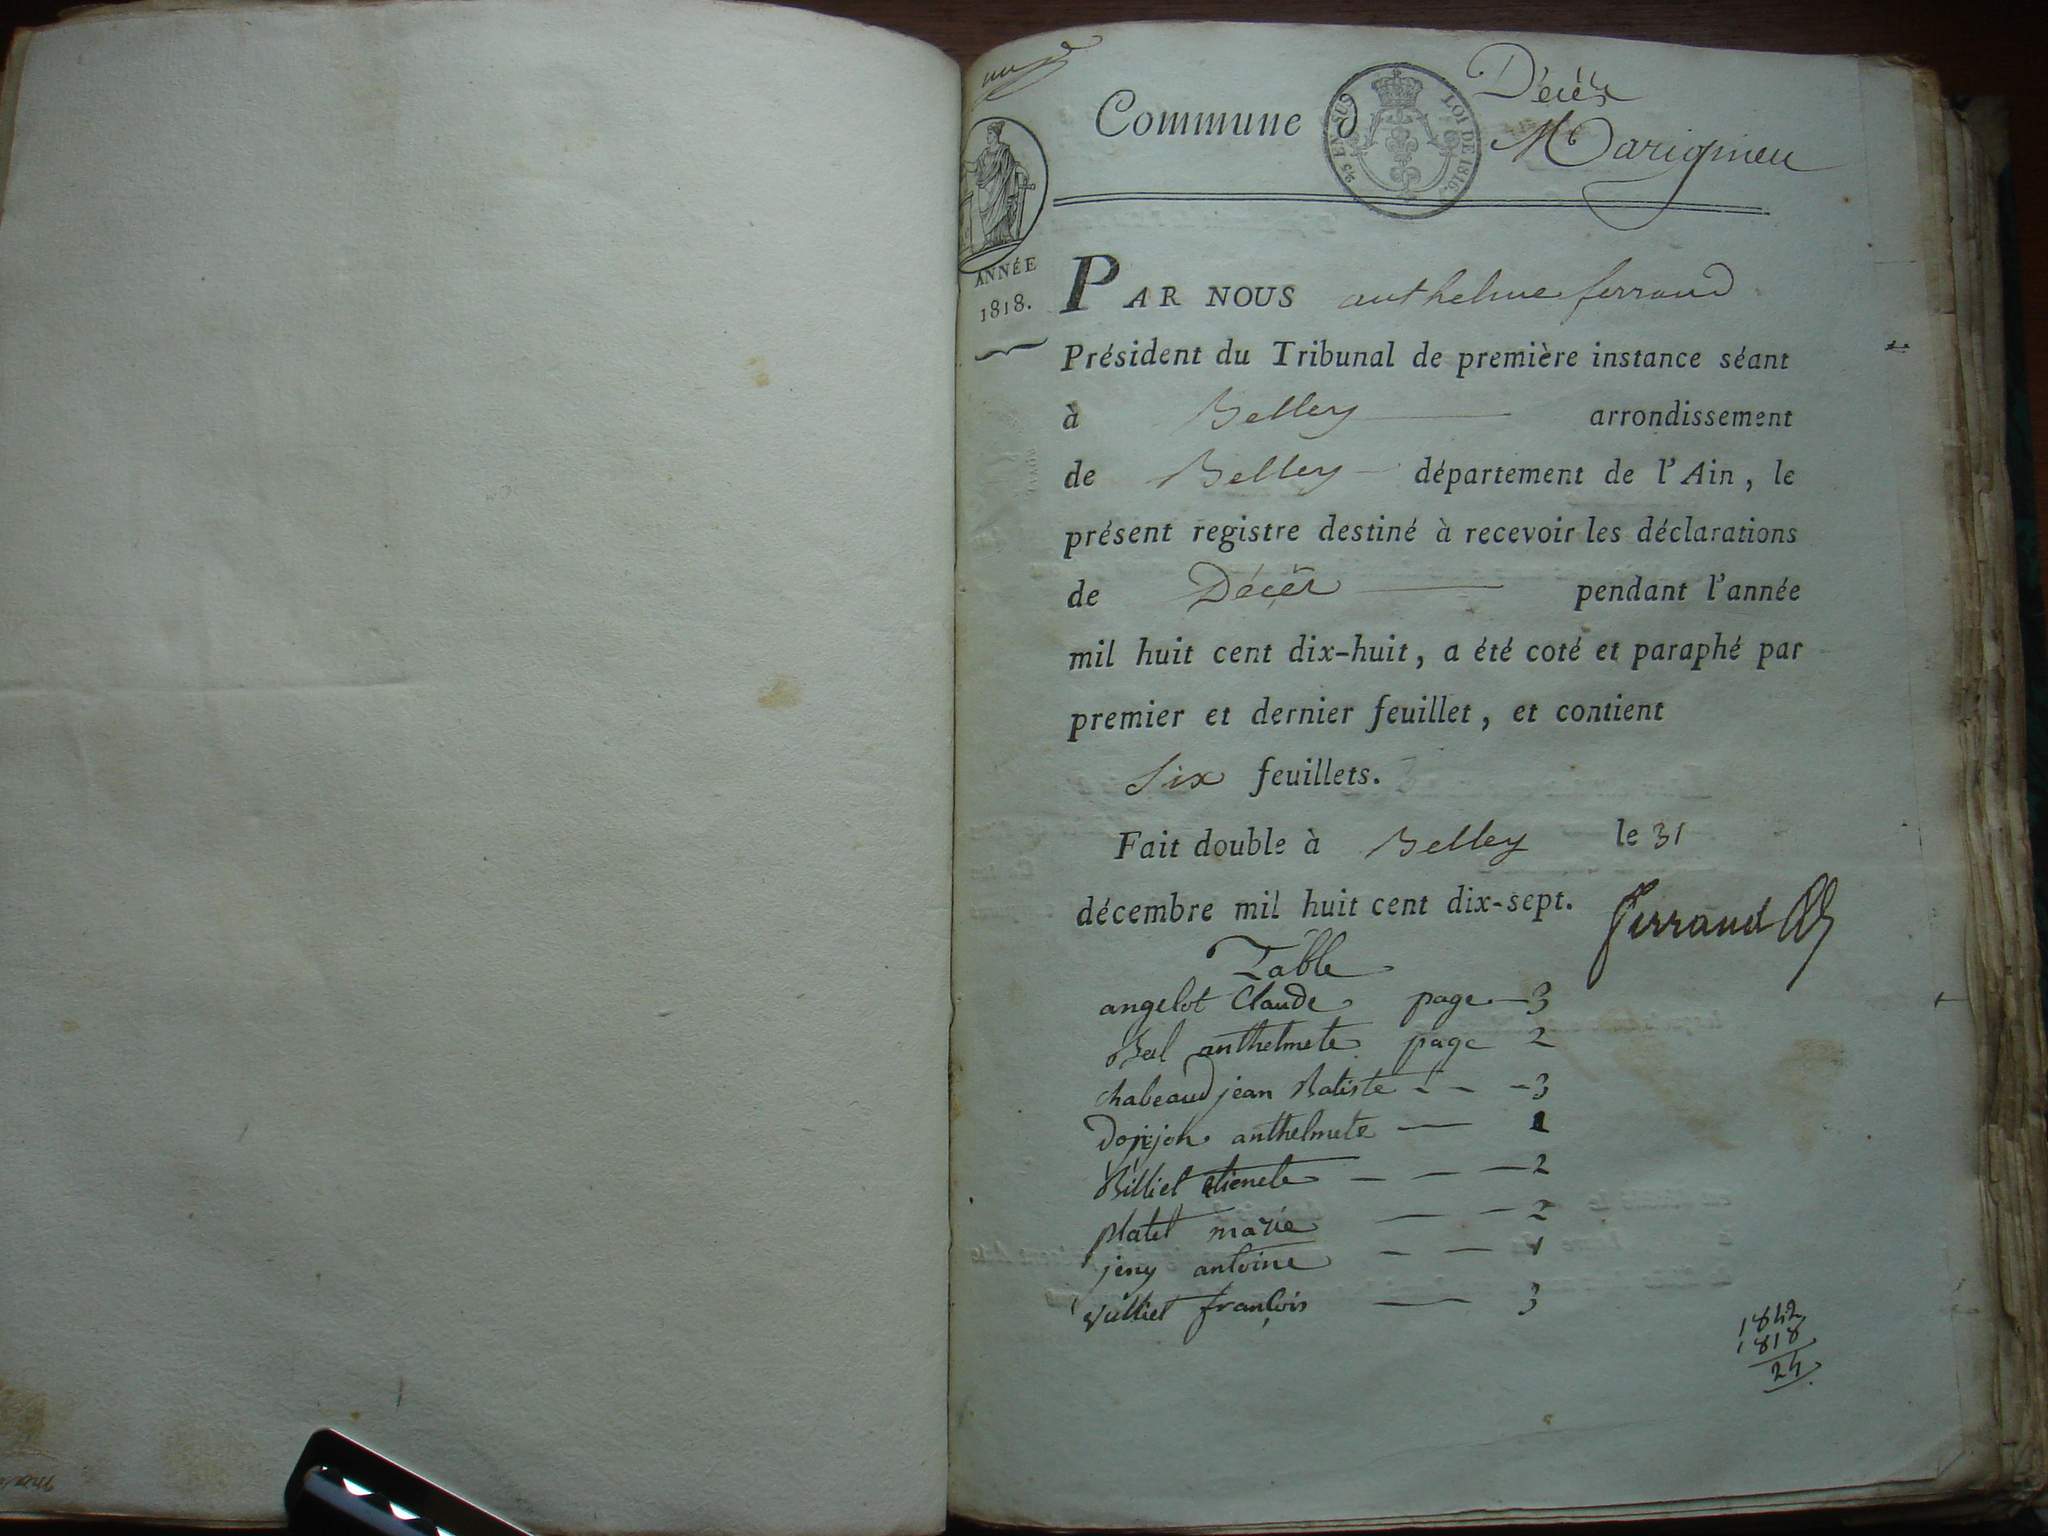 Décès
Commune d Marignieu
25 EN SUS
LOI DE 1816.
ANNÉE
1818.
PAR NOUS anthelme ferrand
Président du Tribunal de première instance séant
à Belley arrondissement
de Belley département de l'Ain, le
présent registre destiné à recevoir les déclarations
de Décès pendant l'année
mil huit cent dix-huit, a été coté et paraphé par
premier et dernier feuillet, et contient
Six feuillets.
Fait double à Belley le 31
décembre mil huit cent dix-sept.
Ferrand
Table
angelot Claude page 3
Bal anthelmete page 2
chabeaud jean Batiste 3
Donjon anthelmete 1
Billiet etienete 2
platel marie 2
jeny antoine 1
vulliet françois 3
1842
1818
24